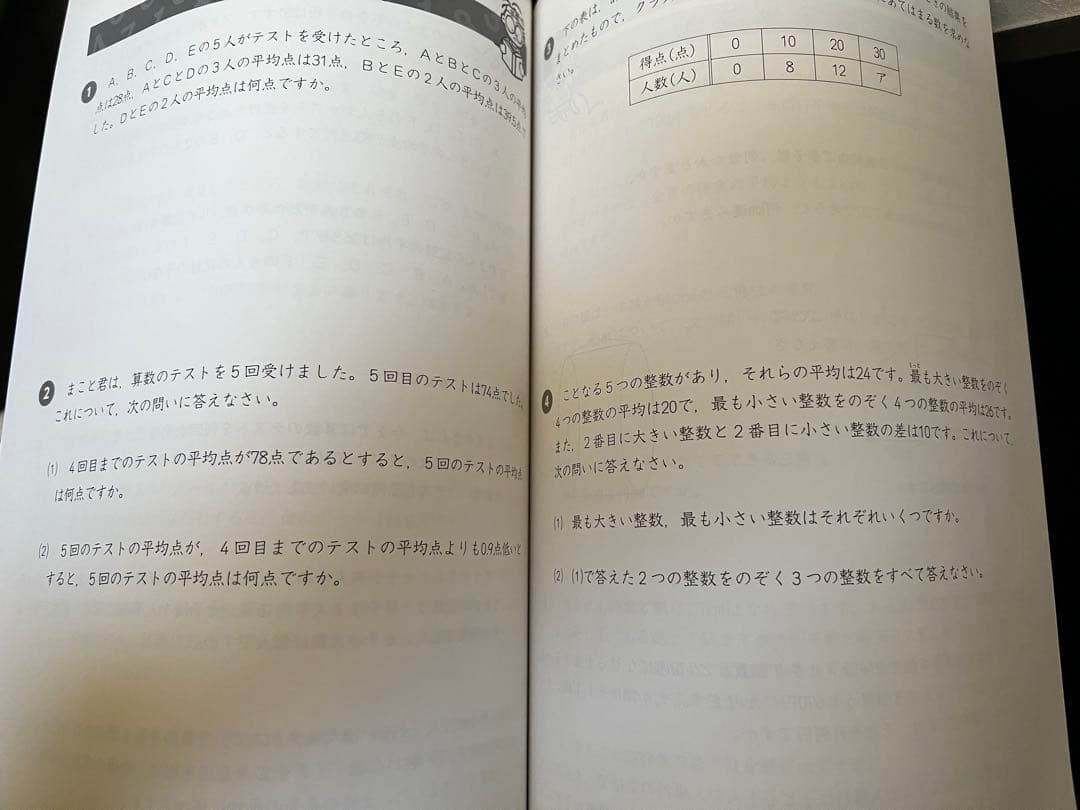 1 A、B、C、D、Eの5人がテストを受けたところ、AとBとCの3人の平均
点は28点、AとCとDの3人の平均点は31点、BとEの2人の平均点は39.5点で
した。DとEの2人の平均点は何点ですか。
2 まこと君は、算数のテストを5回受けました。5回目のテストは74点でした。
これについて、次の問いに答えなさい。
(1) 4回目までのテストの平均点が78点であるとすると、5回のテストの平均点
は何点ですか。
(2) 5回のテストの平均点が、4回目までのテストの平均点よりも0.9点低いと
すると、5回のテストの平均点は何点ですか。
3 下の表は、
の結果を
まとめたもので、クラ
あてはまる数を求めな
さい。
得点(点) 0 10 20 30
人数(人) 0 8 12 ア
4 ことなる5つの整数があり、それらの平均は24です。最も大きい整数をのぞく
4つの整数の平均は20で、最も小さい整数をのぞく4つの整数の平均は26です。
また、2番目に大きい整数と2番目に小さい整数の差は10です。これについて、
次の問いに答えなさい。
(1) 最も大きい整数、最も小さい整数はそれぞれいくつですか。
(2) (1)で答えた2つの整数をのぞく3つの整数をすべて答えなさい。